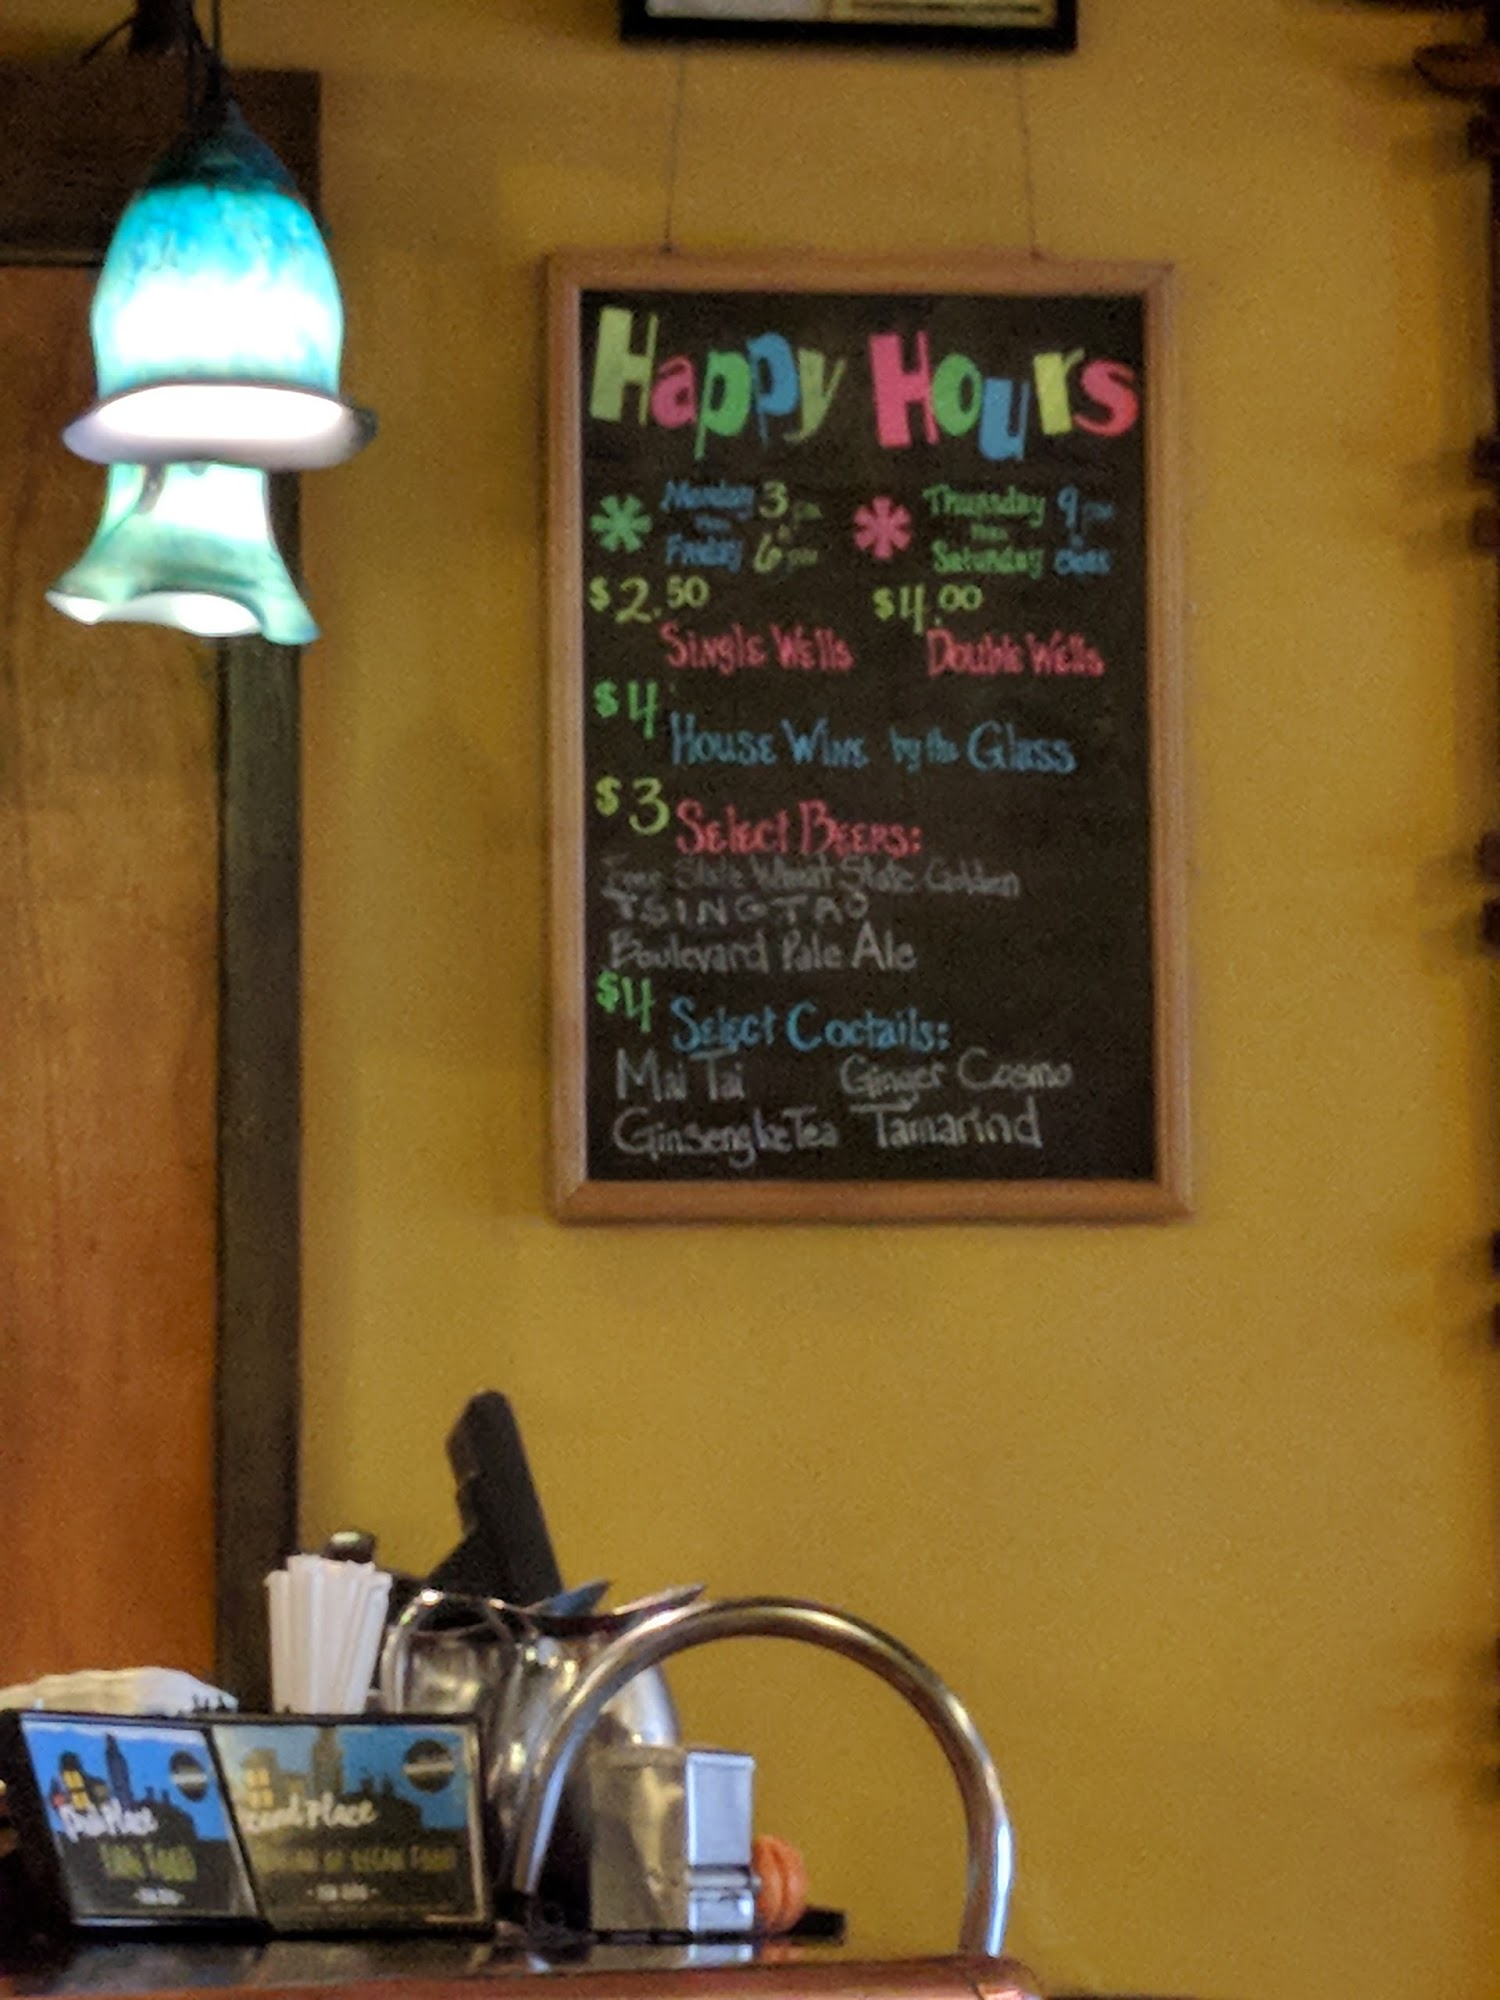 Happy Hours
Monday 3 pm Thursday 9 pm
thru to thru to
Friday 6 pm Saturday close
$2.50 $4.00
Single Wells Double Wells
$4
House Wine by the Glass
$3 Select Beers:
State Wheat State Golden
TSINGTAO
Boulevard Pale Ale
$4 Select Coctails:
Mai Tai Ginger Cosmo
Ginseng Ice Tea Tamarind
2nd Place Second Place
FOOD FOOD